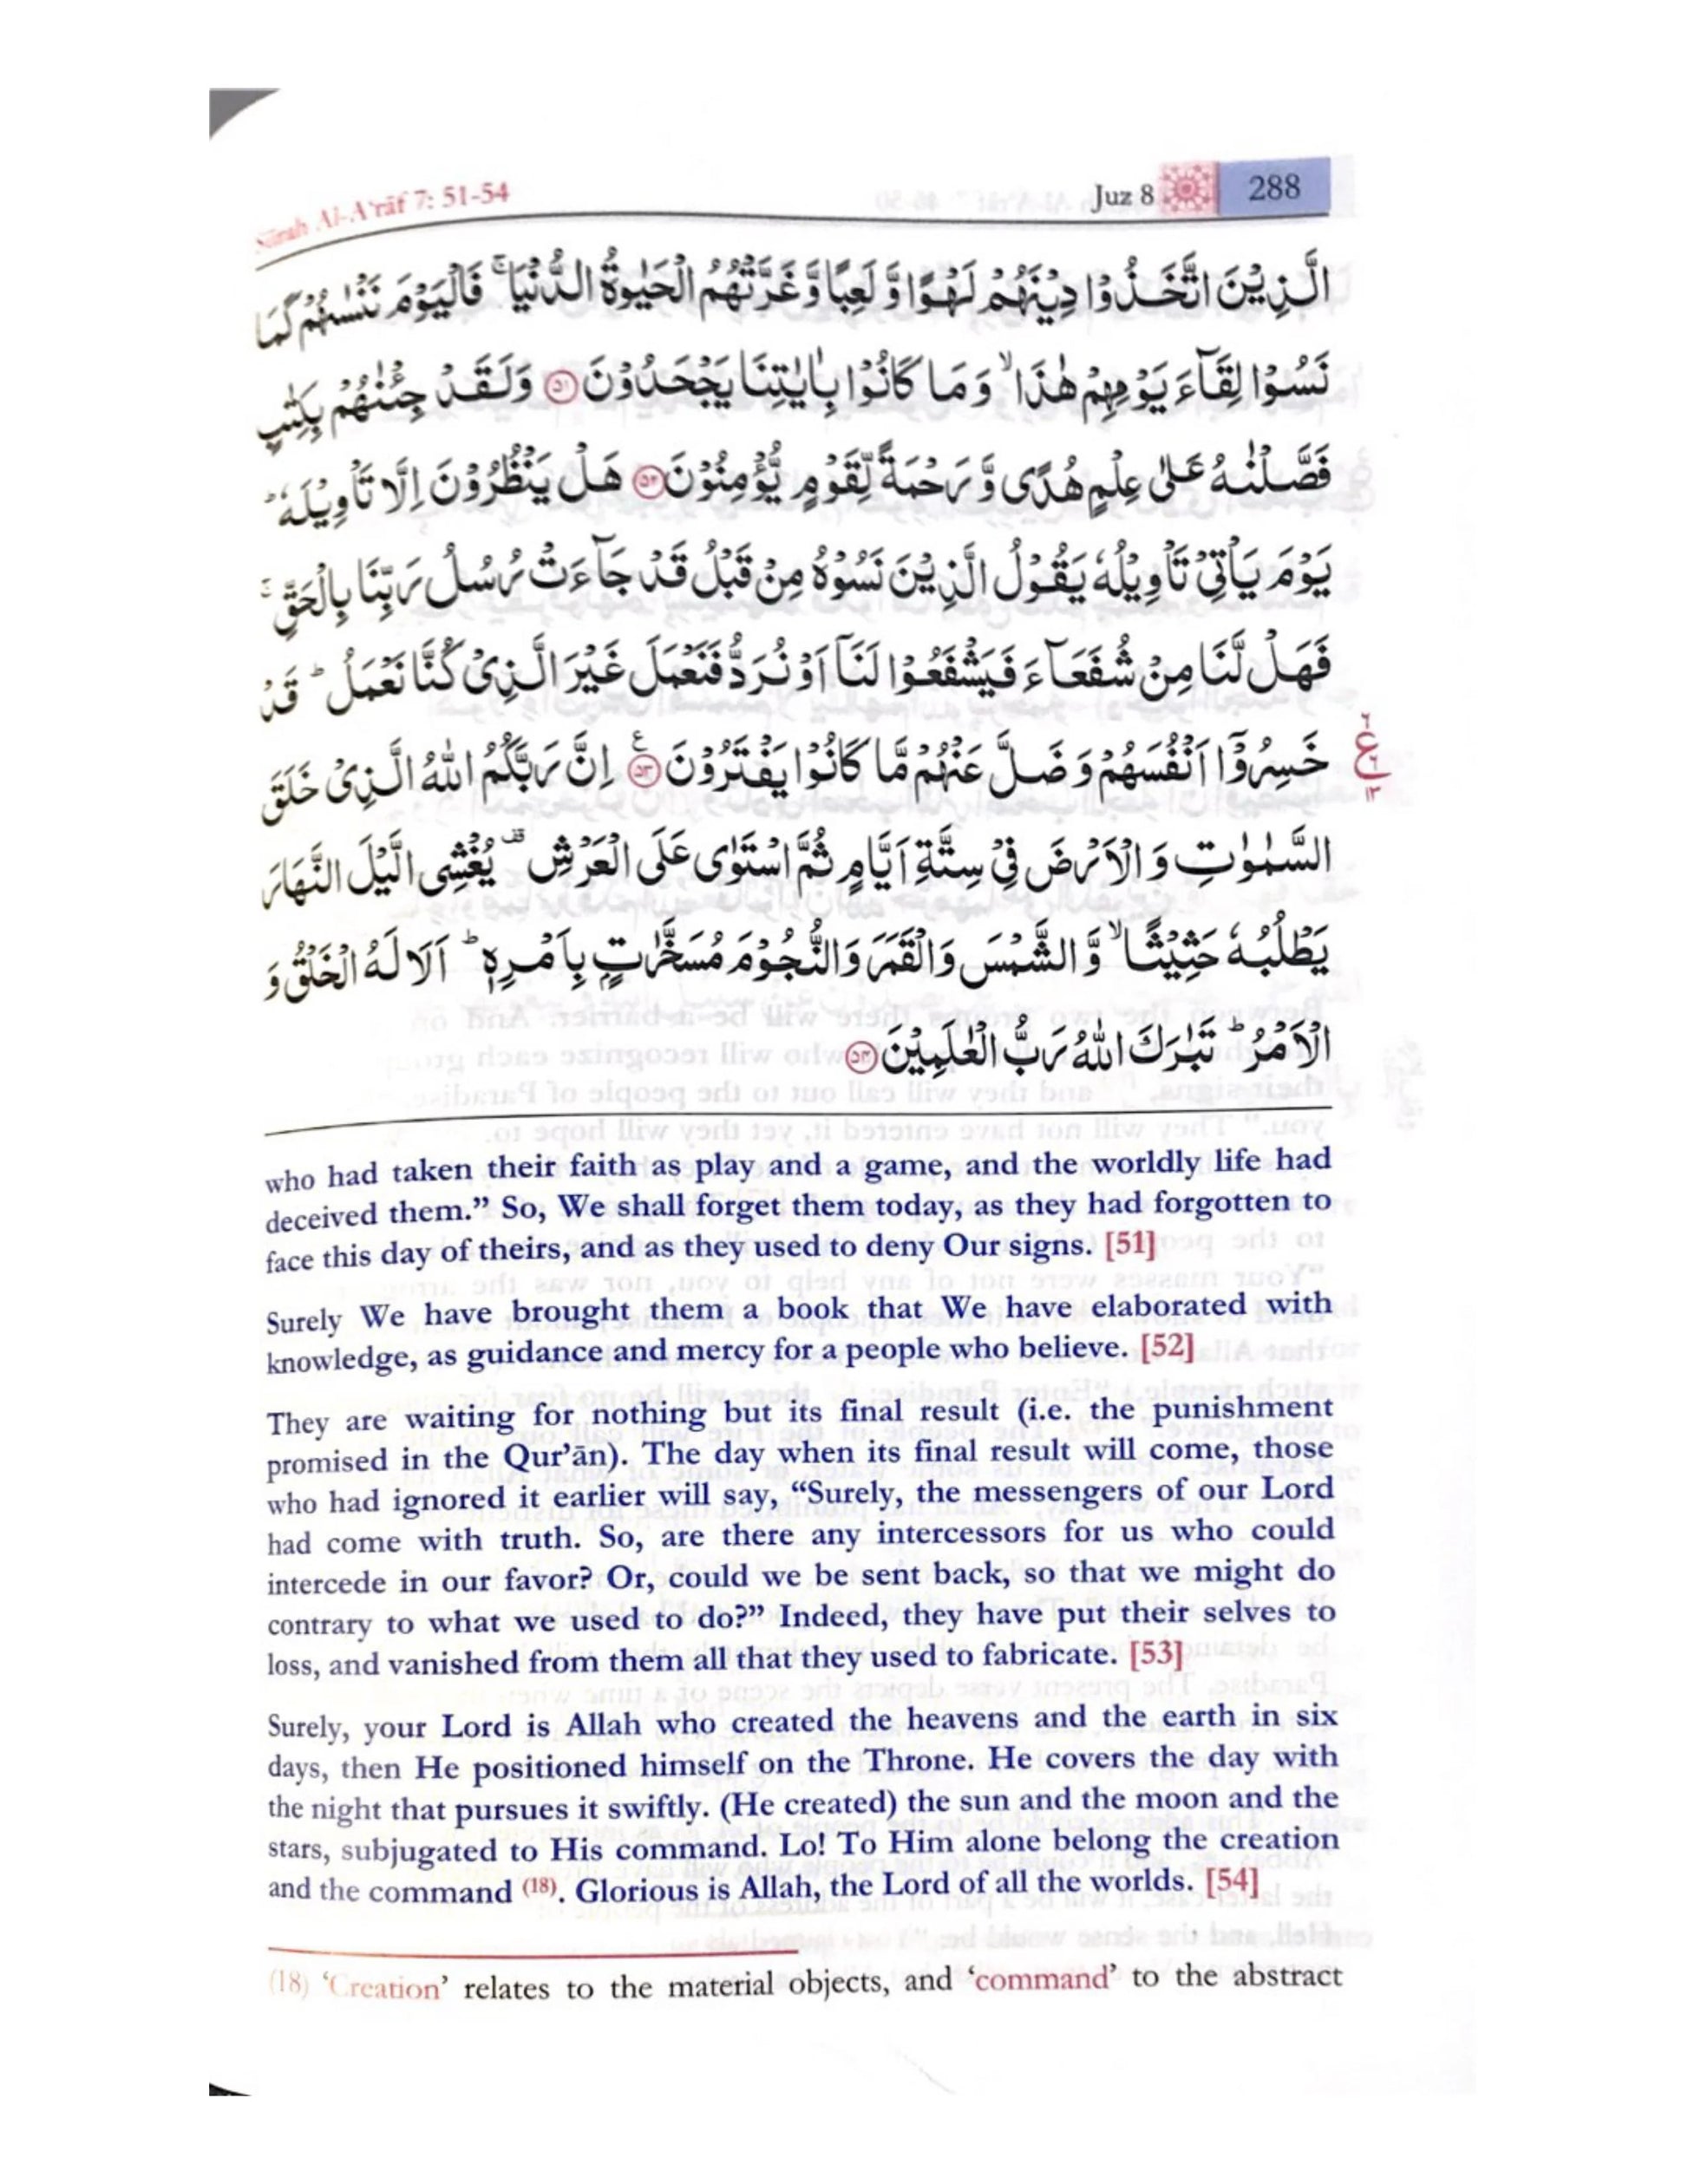 Sūrah Al-A'rāf 7: 51-54
Juz 8 288
الَّذِيْنَ اتَّخَذُوْا دِيْنَهُمْ لَهْوًا وَّ لَعِبًا وَّ غَرَّتْهُمُ الْحَيٰوةُ الدُّنْيَا ۚ فَالْيَوْمَ نَنْسٰىهُمْ كَمَا
نَسُوْا لِقَآءَ يَوْمِهِمْ هٰذَا ۙ وَ مَا كَانُوْا بِاٰيٰتِنَا يَجْحَدُوْنَ ۝۵۱ وَلَقَدْ جِئْنٰهُمْ بِكِتٰبٍ
فَصَّلْنٰهُ عَلٰى عِلْمٍ هُدًى وَّ رَحْمَةً لِّقَوْمٍ يُّؤْمِنُوْنَ ۝۵۲ هَلْ يَنْظُرُوْنَ اِلَّا تَاْوِيْلَهٗ ؕ
يَوْمَ يَاْتِيْ تَاْوِيْلُهٗ يَقُوْلُ الَّذِيْنَ نَسُوْهُ مِنْ قَبْلُ قَدْ جَآءَتْ رُسُلُ رَبِّنَا بِالْحَقِّ ۚ
فَهَلْ لَّنَا مِنْ شُفَعَآءَ فَيَشْفَعُوْا لَنَاۤ اَوْ نُرَدُّ فَنَعْمَلَ غَيْرَ الَّذِيْ كُنَّا نَعْمَلُ ؕ قَدْ
خَسِرُوْۤا اَنْفُسَهُمْ وَ ضَلَّ عَنْهُمْ مَّا كَانُوْا يَفْتَرُوْنَ ۝۵۳ اِنَّ رَبَّكُمُ اللّٰهُ الَّذِيْ خَلَقَ
السَّمٰوٰتِ وَ الْاَرْضَ فِيْ سِتَّةِ اَيَّامٍ ثُمَّ اسْتَوٰى عَلَى الْعَرْشِ ۫ يُغْشِى الَّيْلَ النَّهَارَ
يَطْلُبُهٗ حَثِيْثًا ۙ وَّ الشَّمْسَ وَ الْقَمَرَ وَ النُّجُوْمَ مُسَخَّرٰتٍۭ بِاَمْرِهٖ ؕ اَلَا لَهُ الْخَلْقُ وَ
الْاَمْرُ ؕ تَبٰرَكَ اللّٰهُ رَبُّ الْعٰلَمِيْنَ ۝۵۴
who had taken their faith as play and a game, and the worldly life had
deceived them.” So, We shall forget them today, as they had forgotten to
face this day of theirs, and as they used to deny Our signs. [51]
Surely We have brought them a book that We have elaborated with
knowledge, as guidance and mercy for a people who believe. [52]
They are waiting for nothing but its final result (i.e. the punishment
promised in the Qur’ān). The day when its final result will come, those
who had ignored it earlier will say, “Surely, the messengers of our Lord
had come with truth. So, are there any intercessors for us who could
intercede in our favor? Or, could we be sent back, so that we might do
contrary to what we used to do?” Indeed, they have put their selves to
loss, and vanished from them all that they used to fabricate. [53]
Surely, your Lord is Allah who created the heavens and the earth in six
days, then He positioned himself on the Throne. He covers the day with
the night that pursues it swiftly. (He created) the sun and the moon and the
stars, subjugated to His command. Lo! To Him alone belong the creation
and the command (18). Glorious is Allah, the Lord of all the worlds. [54]
(18) ‘Creation’ relates to the material objects, and ‘command’ to the abstract